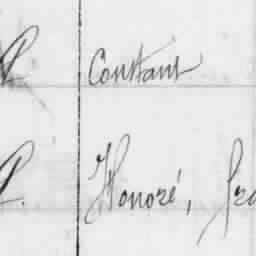 P Constant
P. Honoré, fra